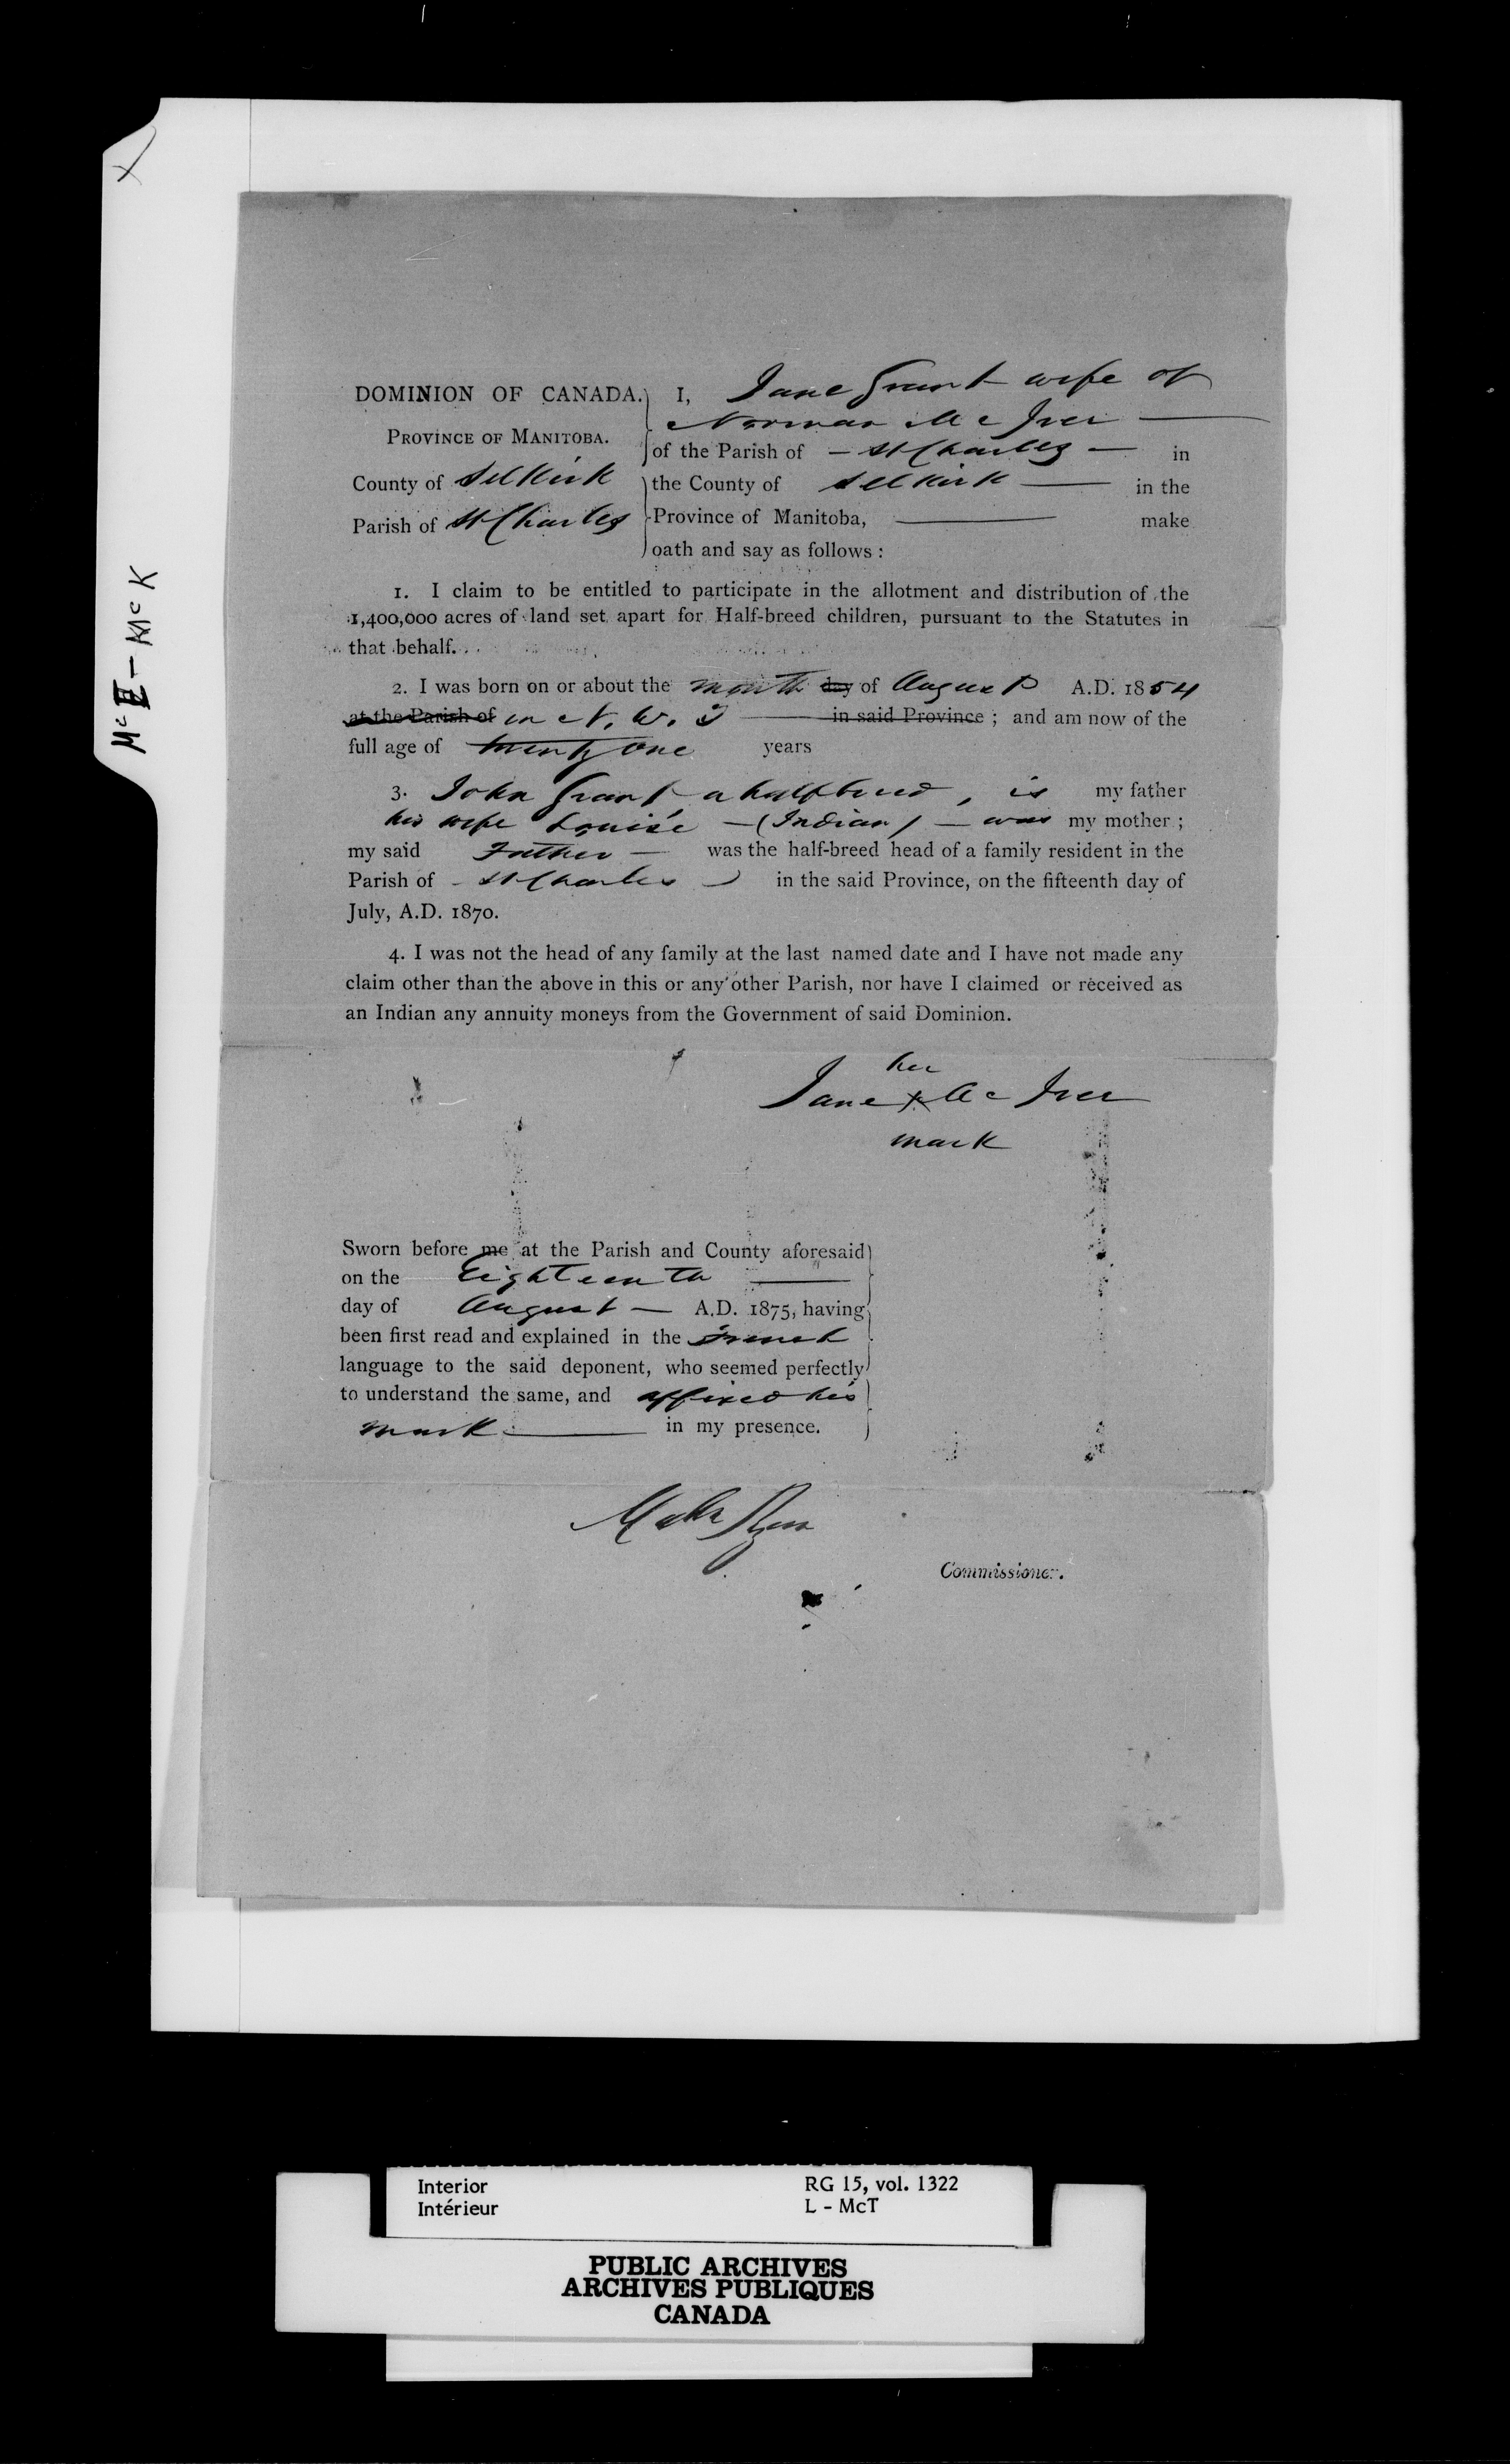 McE - McK
DOMINION OF CANADA.
PROVINCE OF MANITOBA.
County of Selkirk
Parish of St Charles
I, Jane Grant wife of
Norman McIver
of the Parish of — St Charles — in
the County of Selkirk — in the
Province of Manitoba, — make
oath and say as follows :
1. I claim to be entitled to participate in the allotment and distribution of the
1,400,000 acres of land set apart for Half-breed children, pursuant to the Statutes in
that behalf.
2. I was born on or about the month day of August A.D. 1854
at the Parish of in N. W. T — in said Province ; and am now of the
full age of twenty one years
3. John Grant a halfbreed, is my father
his wife Louise — (Indian) — was my mother ;
my said Father — was the half-breed head of a family resident in the
Parish of - St Charles - in the said Province, on the fifteenth day of
July, A.D. 1870.
4. I was not the head of any family at the last named date and I have not made any
claim other than the above in this or any other Parish, nor have I claimed or received as
an Indian any annuity moneys from the Government of said Dominion.
her
Jane x McIver
mark
Sworn before me at the Parish and County aforesaid
on the Eighteenth —
day of August — A.D. 1875, having
been first read and explained in the French
language to the said deponent, who seemed perfectly
to understand the same, and affixed his
mark — in my presence.
Ryan
Commissioner.
Interior
Intérieur
RG 15, vol. 1322
L - McT
PUBLIC ARCHIVES
ARCHIVES PUBLIQUES
CANADA